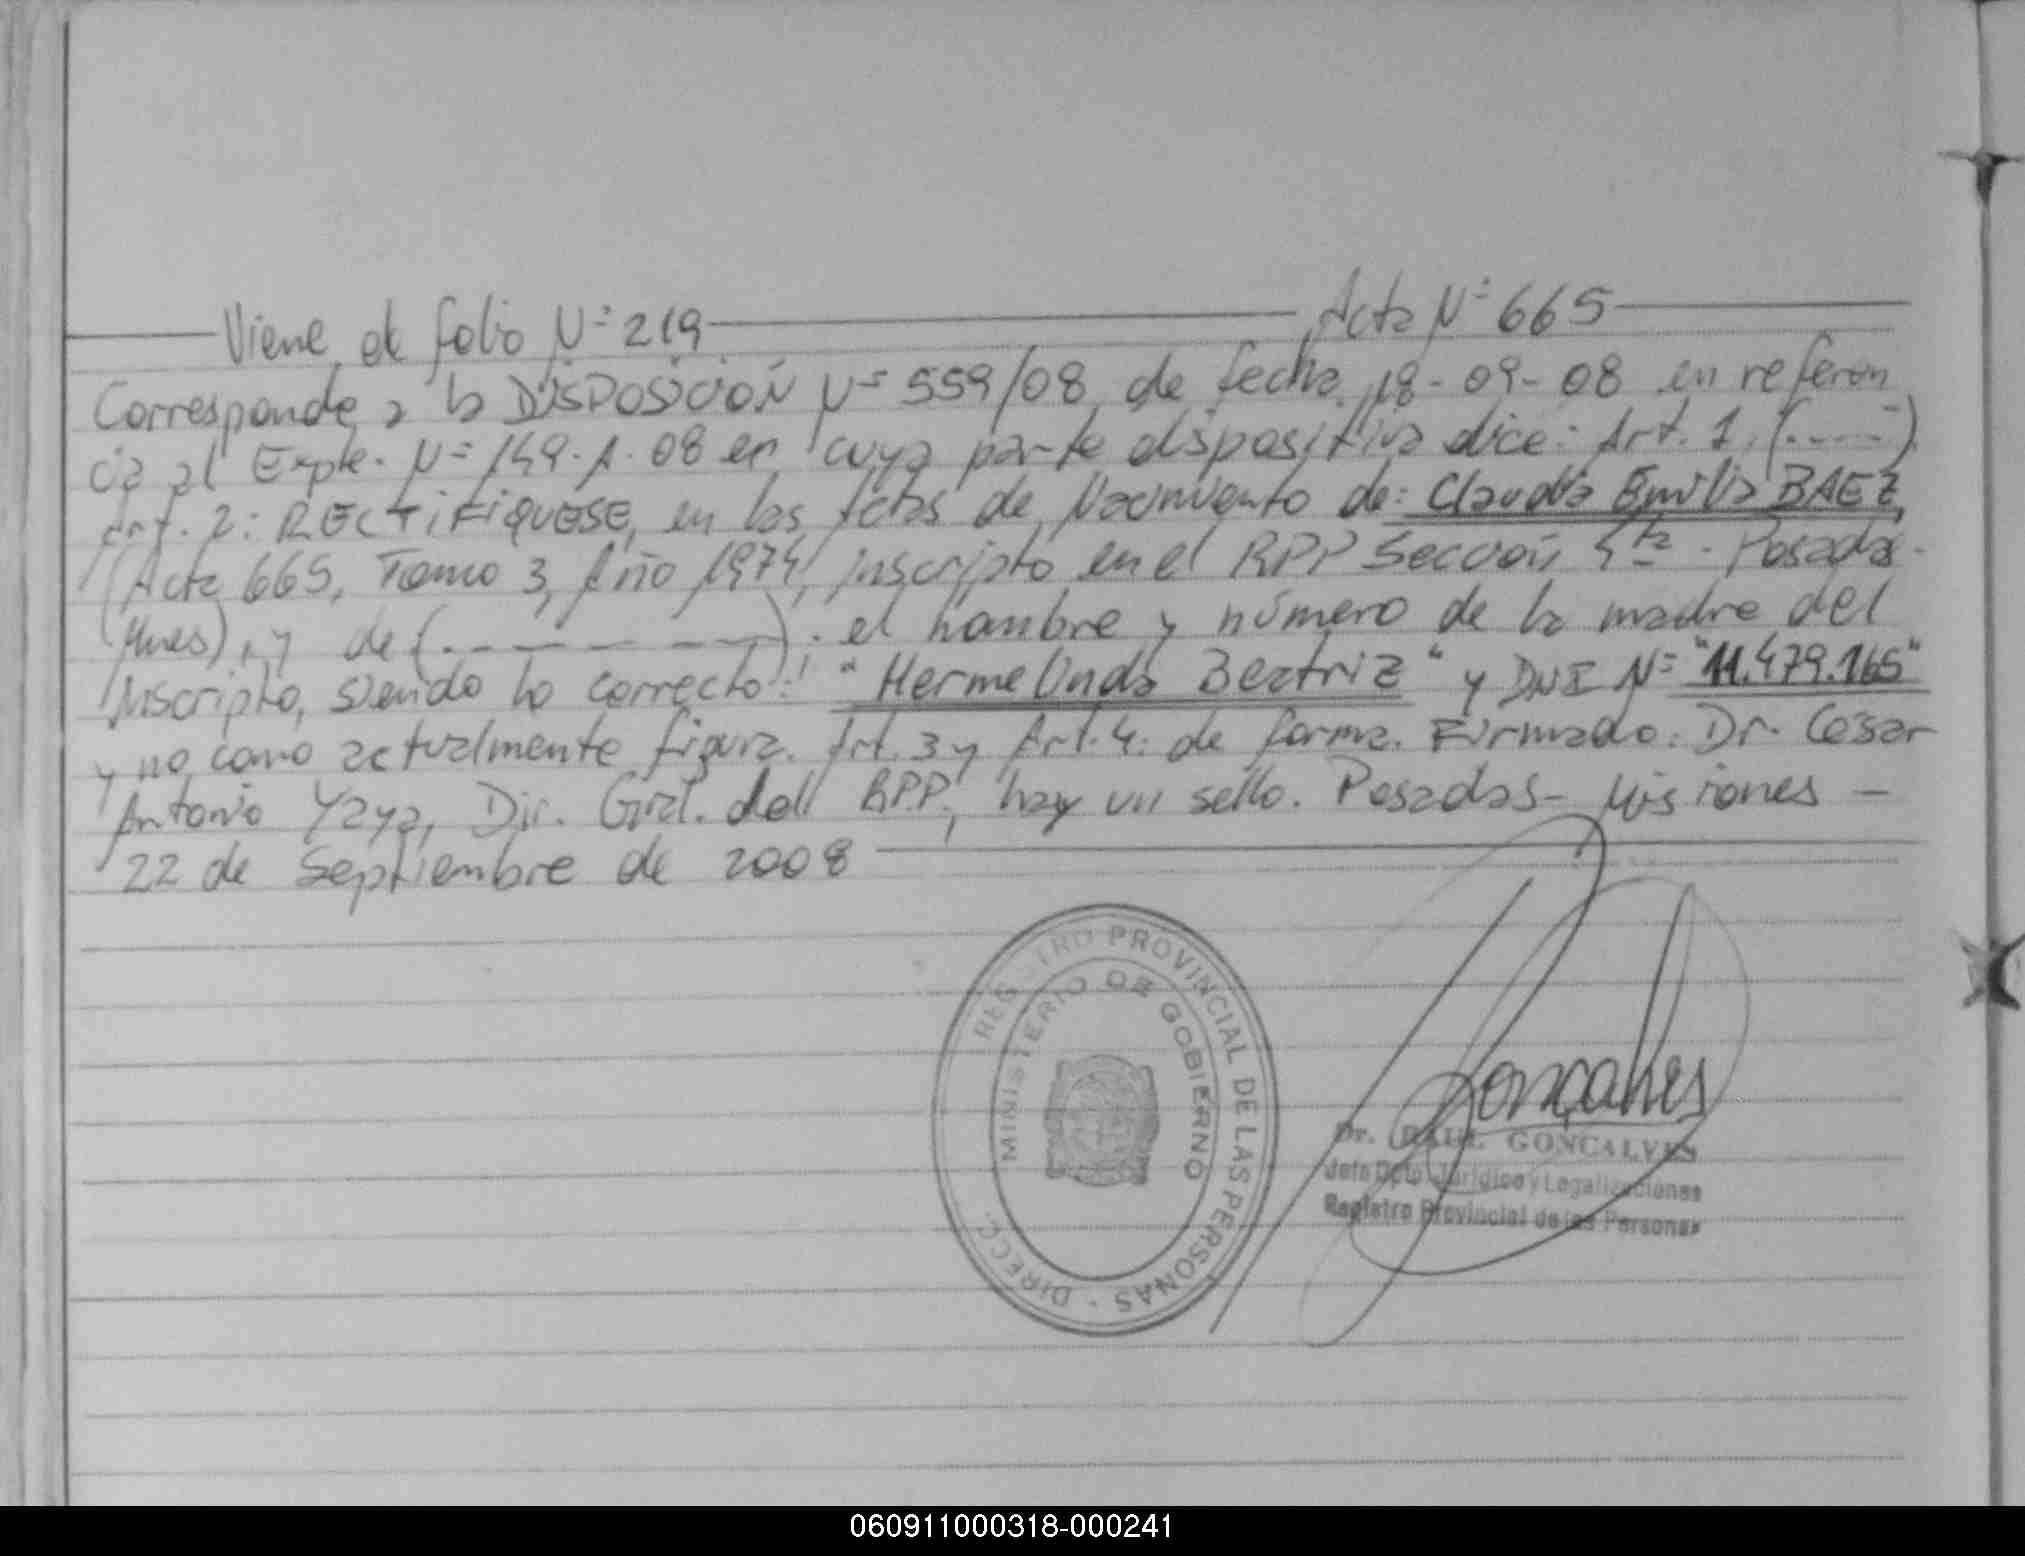 Viene del folio Nº 219 Acta Nº 665
Corresponde a la DISPOSICIÓN Nº 559/08 de fecha 18-09-08 en referen
cia al Expte. Nº 149.A.08 en cuya parte dispositiva dice: Art. 1: (.----)
Art. 2: RECTIFIQUESE, en las Actas de Nacimiento de: Claudia Emilia BAEZ,
(Acta 665, Tomo 3, Año 1974, inscripto en el RPP Sección 4ta - Posadas -
Mnes), y de (.- - - - - -); el nombre y número de la madre del
Inscripto, siendo lo correcto: "Hermelinda Beatriz" y DNI Nº "11.479.165"
y no como actualmente figura. Art. 3 y Art. 4: de forma. Firmado: Dr. Cesar
Antonio Yaya, Dir. Gral. del RPP, hay un sello. Posadas - Misiones -
22 de Septiembre de 2008
REGISTRO PROVINCIAL DE LAS PERSONAS - DIRECC.
MINISTERIO DE GOBIERNO
Gonçalves
Dr. RAUL GONCALVES
Jefe Dpto. Jurídico y Legalizaciones
Registro Provincial de las Personas
060911000318-000241